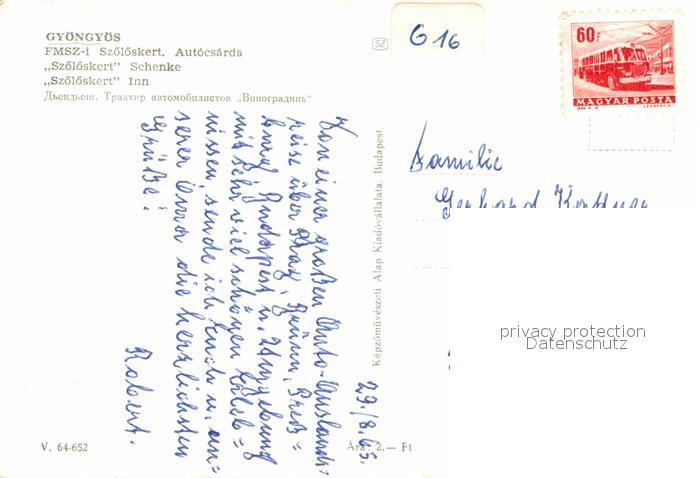 GYÖNGYÖS
FMSZ-i Szőlőskert. Autócsárda
„Szőlőskert" Schenke
„Szőlőskert" Inn
Дьендьеш. Трактир автомобилистов „Виноградник"
SZ
G 16
60f
MAGYAR POSTA
29./8.65.
Von einer großen Auto-Auslands=
reise über Prag, Brünn, Preß=
burg, Budapest u. Umgebung
mit sehr viel schönen Erleb=
nissen, sende ich Euch u. un=
serer Omma die herzlichsten
Grüße!
Robert.
Képzőművészeti Alap Kiadóvállalata, Budapest
Familie
Gerhard
privacy protection
Datenschutz
V. 64-652
Ára: 2,— Ft